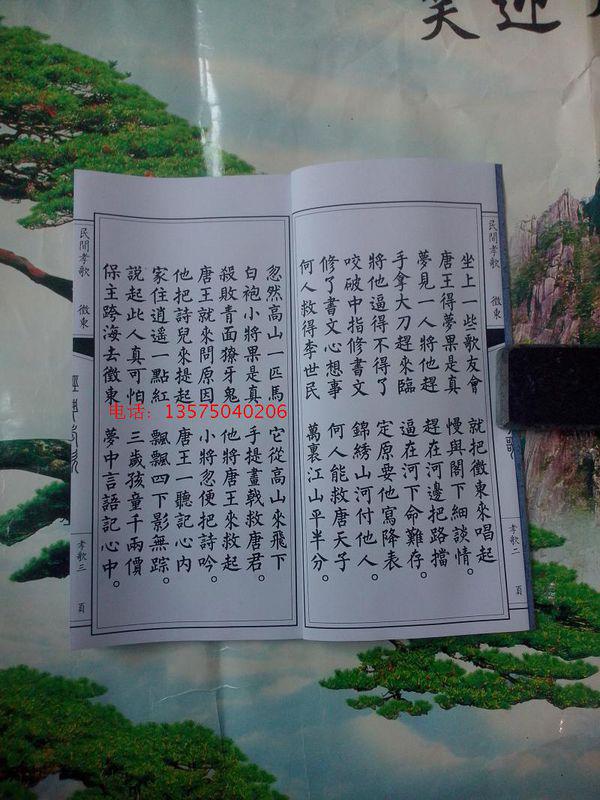 笑迎
民間孝歌 徵東
坐上一些歌友會 就把徵東來唱起
唐王得夢果是真 慢與閣下細談情。
夢見一人將他趕 趕在河邊把路擋
手拿大刀趕來臨 逼在河下命難存。
將他逼得不得了 定原要他寫降表
咬破中指修書文 錦綉山河付他人。
修了書文心想事 何人能救唐天子
何人救得李世民 萬裏江山平半分。
孝歌二 頁
忽然高山一匹馬 它從高山來飛下
白袍小將果是真 手提畫戟救唐君。
殺敗青面獠牙鬼 他將唐王來救起
唐王就來問原因 小將忽便把詩吟。
他把詩兒來提起 唐王一聽記心內
家住逍遥一點紅 飄飄四下影無踪。
說起此人真可怕 三歲孩童千兩價
保主跨海去徵東 夢中言語記心中。
民間孝歌 徵東
孝歌三 頁
电话：13575040206